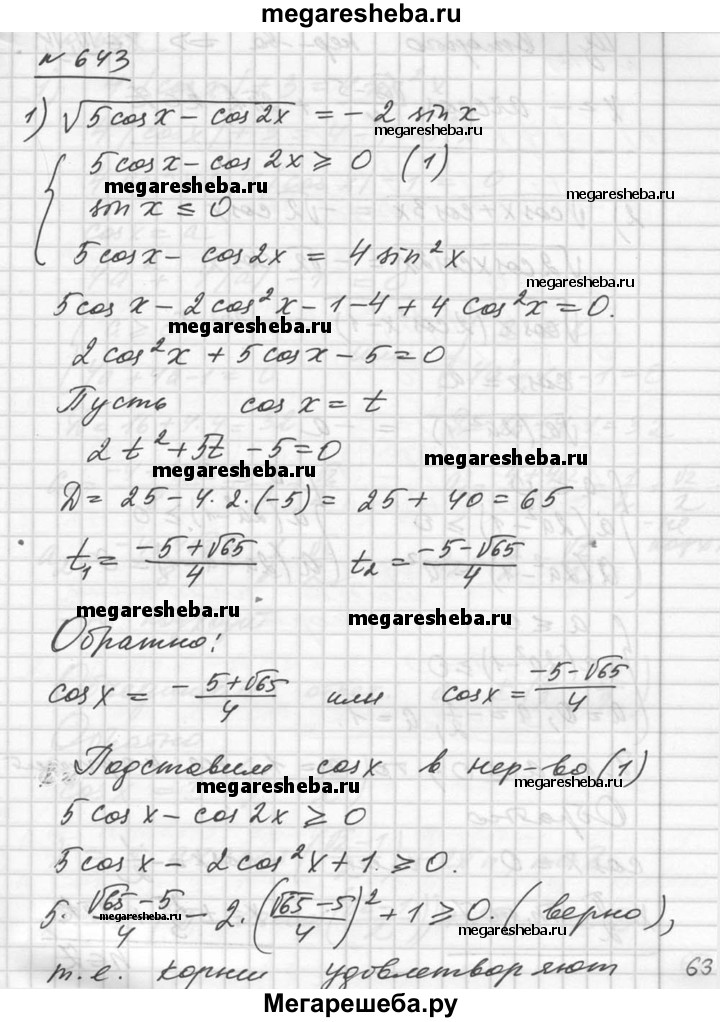 megaresheba.ru
№ 643
1) √(5cosx − cos2x) = − 2 sin x
megaresheba.ru
5cosx − cos 2x ⩾ 0 (1)
megaresheba.ru
megaresheba.ru
sin x ≤ 0
5cosx − cos2x = 4 sin²x
megaresheba.ru
5cos x − 2cos²x − 1 − 4 + 4 cos²x = 0.
megaresheba.ru
2cos²x + 5cosx − 5 = 0
Пусть cos x = t
2t² + 5t − 5 = 0
megaresheba.ru
megaresheba.ru
Д = 25 − 4·2·(−5) = 25 + 40 = 65
t₁ = (−5 + √65)/4 t₂ = (−5 − √65)/4
megaresheba.ru
megaresheba.ru
Обратно:
cosx = − (5 + √65)/4 или cosx = (−5 − √65)/4
Подставим cosx в нер-во (1)
megaresheba.ru
megaresheba.ru
5cosx − cos2x ⩾ 0
5cosx − 2cos²x + 1 ⩾ 0.
5·(√65 − 5)/4 − 2·((√65 − 5)/4)² + 1 ⩾ 0. (верно),
megaresheba.ru
megaresheba.ru
т.е. корни удовлетворяют
63
Мегарешеба.ру